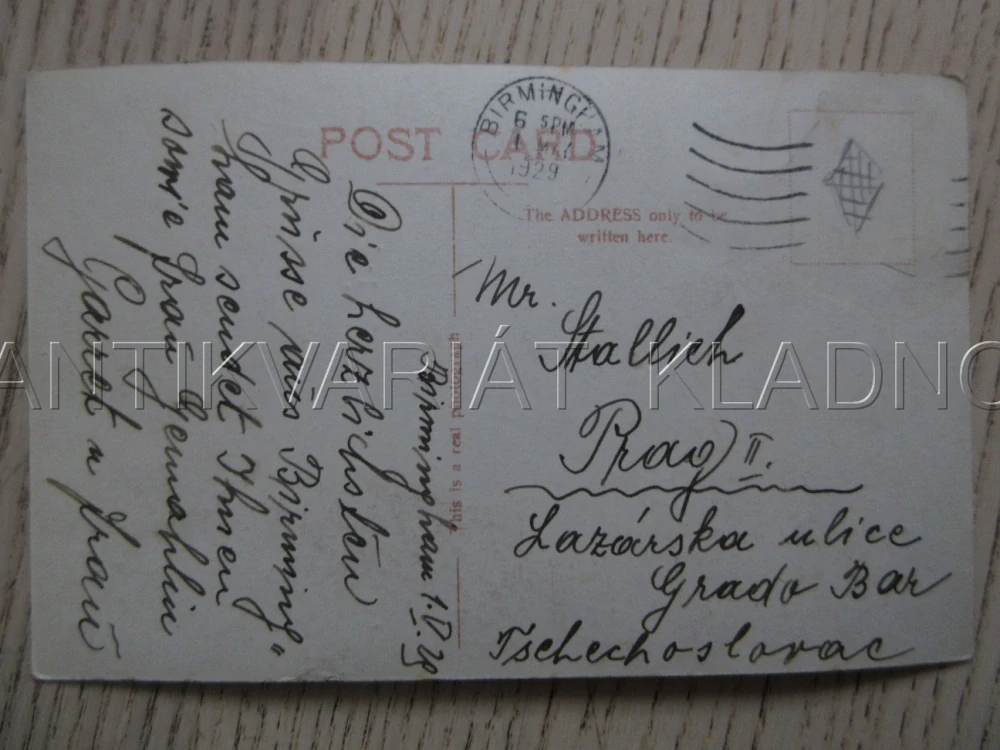 POST CARD
BIRMINGHAM
6 5PM
1 MY
1929
The ADDRESS only to be
written here.
This is a real photograph
Birmingham 1.V.29
Die herzlichsten
Grüsse aus Birming"
ham sendet Ihnen
sowie Frau Gemahlin
u Frau
Mr.
Stallich
Prag II.
Lazárska ulice
Grado Bar
Tschechoslovac
ANTIKVARIÁT KLADNO